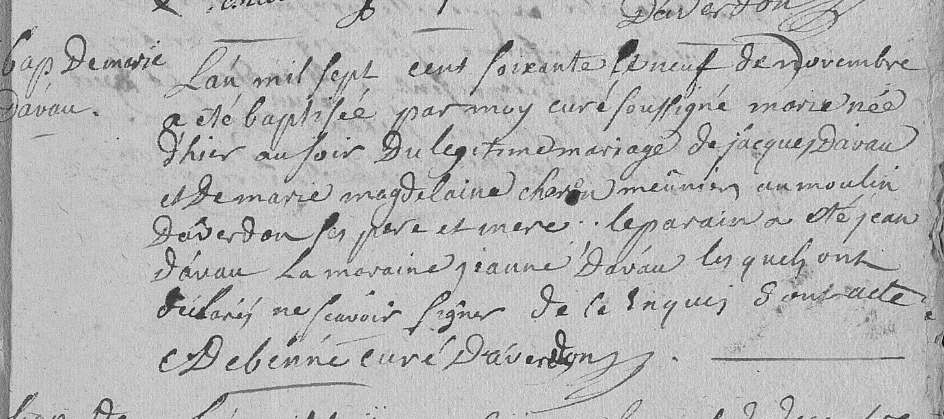 Daverdon
bap De marie
Davau.
L'an mil sept cent soixante le neuf de novembre
a été baptisée par moy curé soussigné marie née
d'hier au soir Du legitime mariage de jacques Davau
et De marie magdelaine cheron meûniers au moulin
Daverdon ses pere et mere . le parain a été jean
Davau La maraine jeanne Davau lesquels ont
déclarés ne scavoir signer de ce Enquis Dont acte
Debenne curé Daverdon